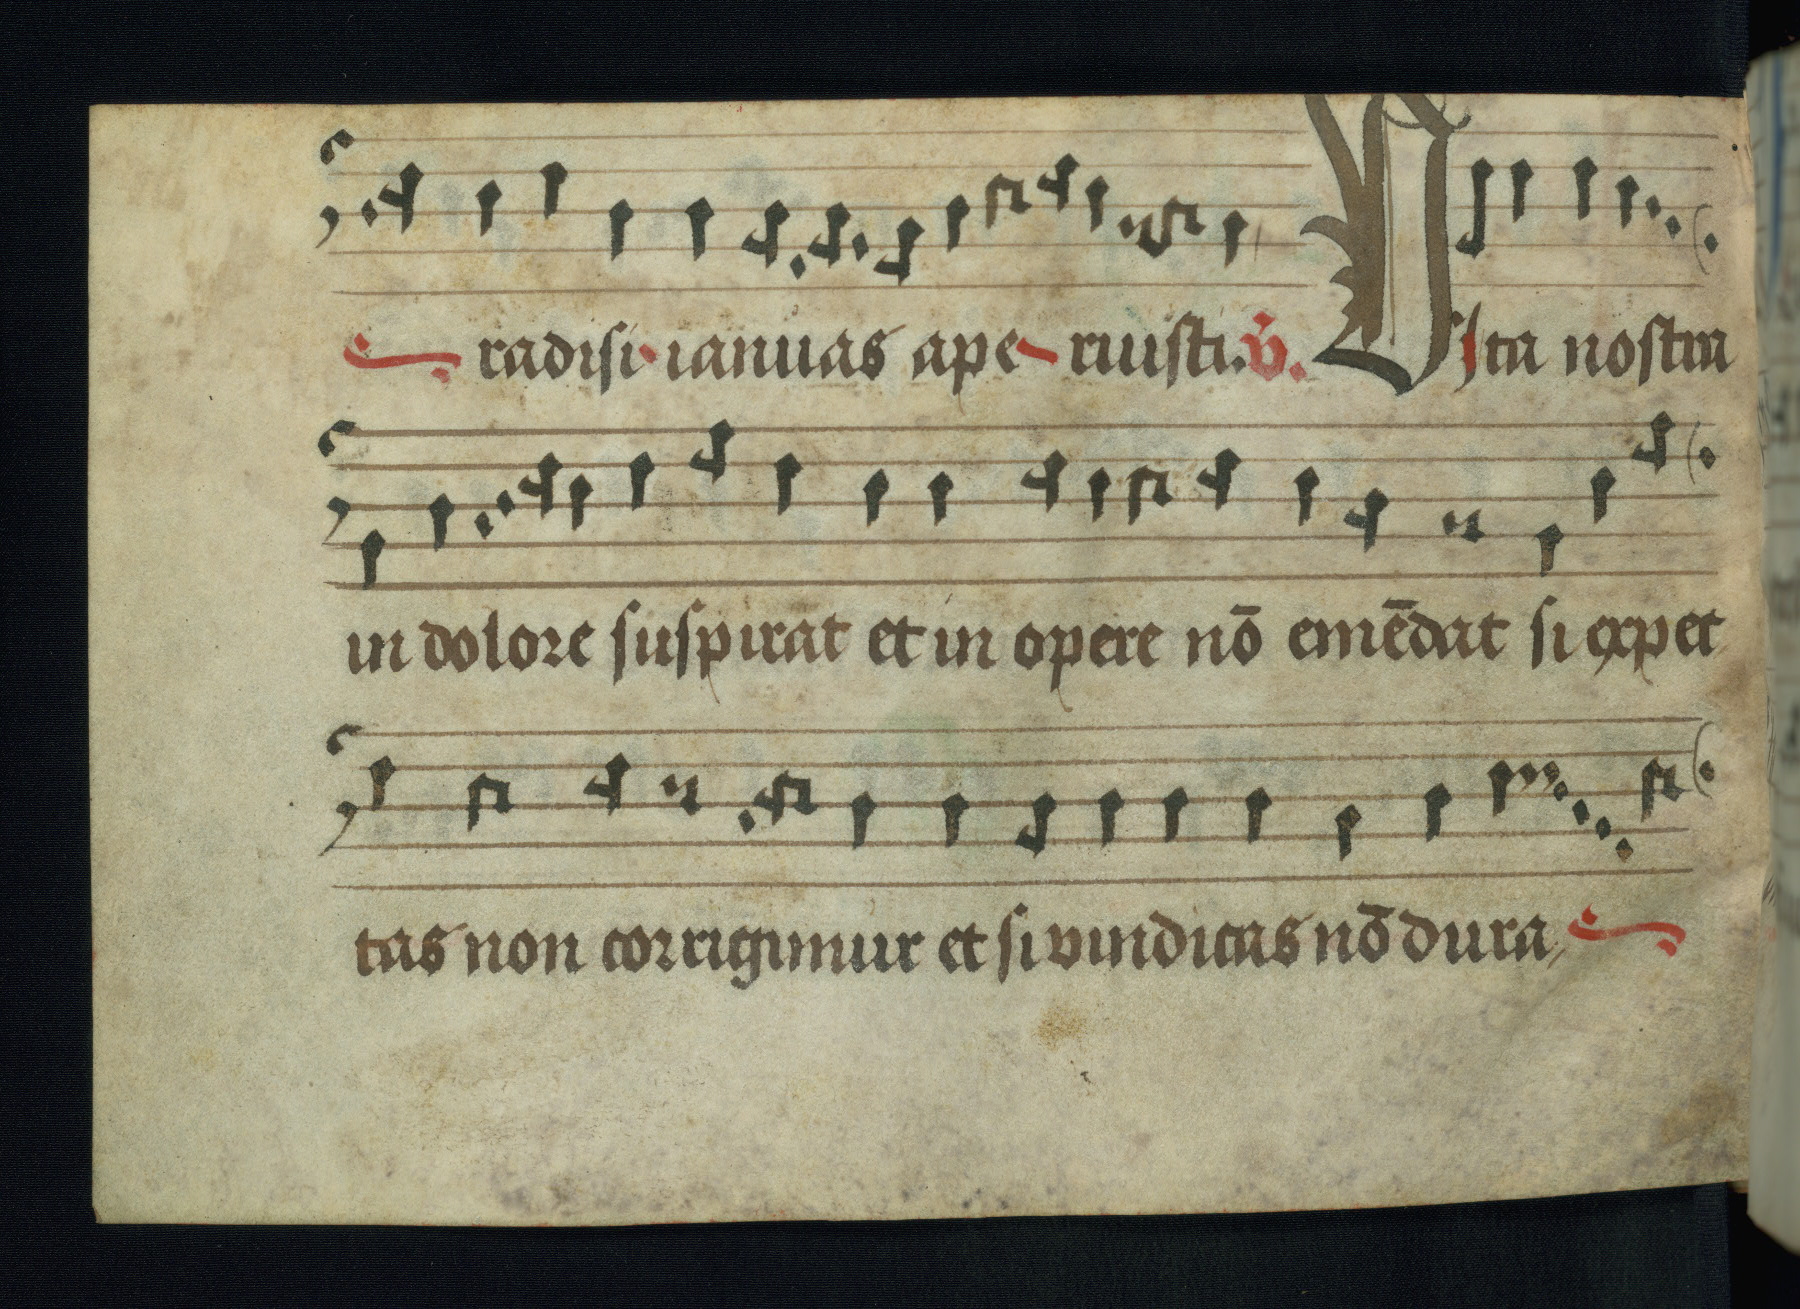 radisi ianuas aperuisti. v̄. Vita nostra
in dolore suspirat et in opere nō emēdat si expec
tas non corrigimur et si vindicas nō dura